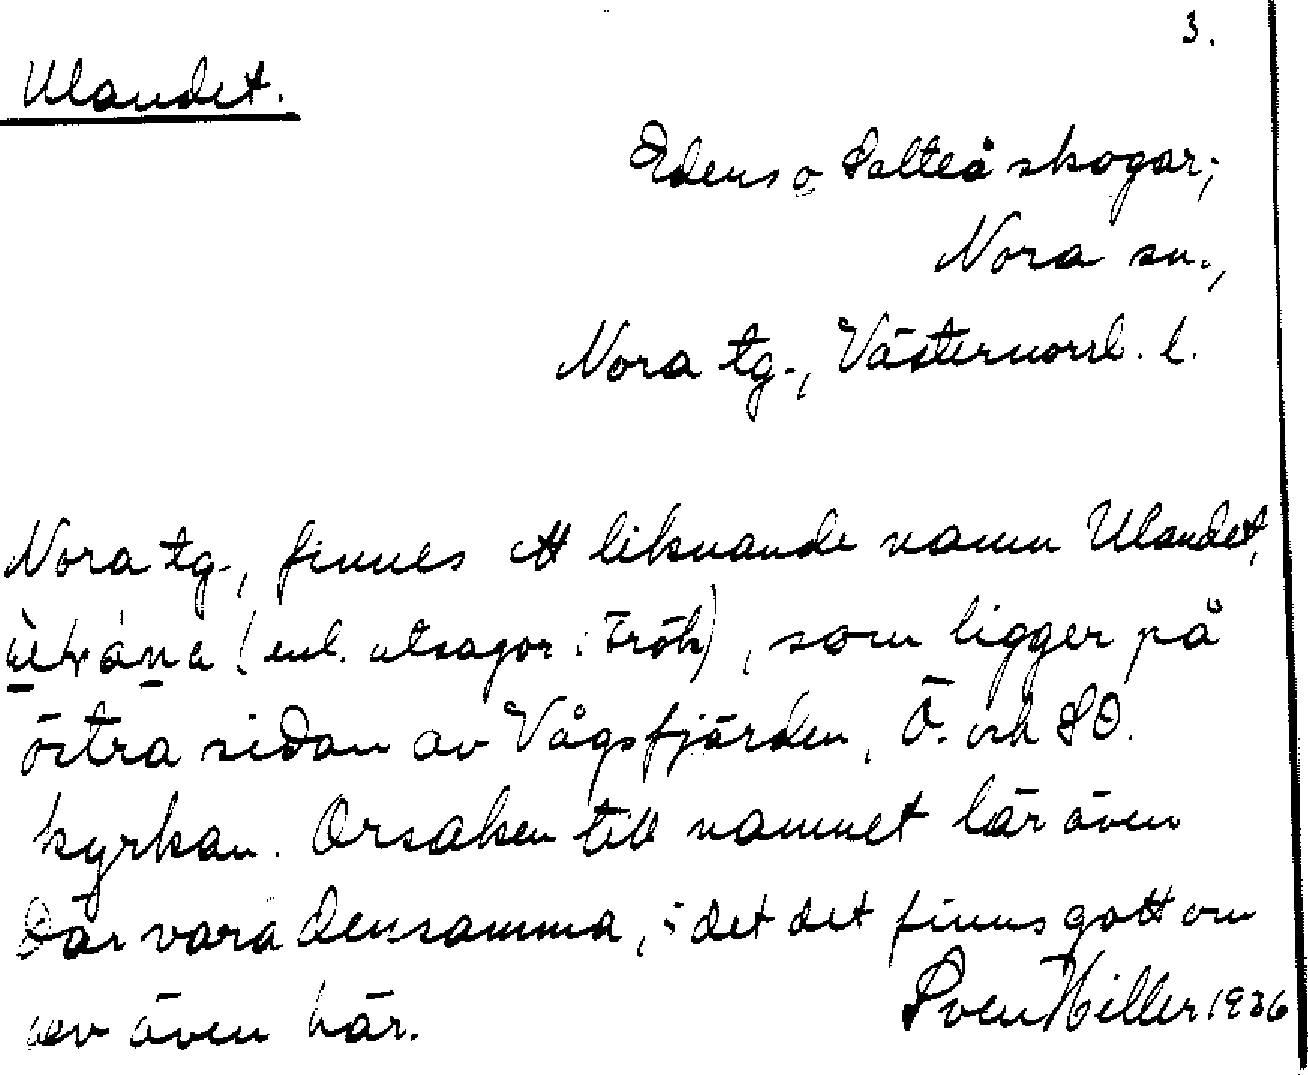 3.
Ulandet.
Edens o Salteå skogar;
Nora sn.,
Nora tg., Västernorrl. l.
Nora tg., finnes ett liknande namn Ulandet,
(enl. utsagor i Trök), som ligger på
östra sidan av Vågsfjärden, Ö. och SO.
kyrkan. Orsaken till namnet lär även
där vara densamma, i det det finns gott om
uv även här.
Sven Hiller 1936